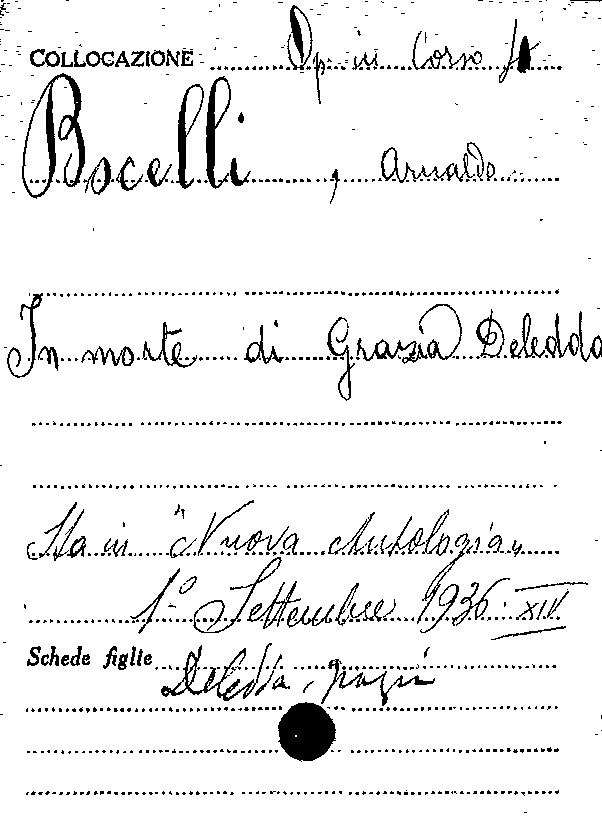 COLLOCAZIONE Op. in Corso
Bocelli, Arnaldo
In morte di Grazia Deledda
Sta in "Nuova Antologia"
1º Settembre 1936. XIV
Schede figlie Deledda, Grazia